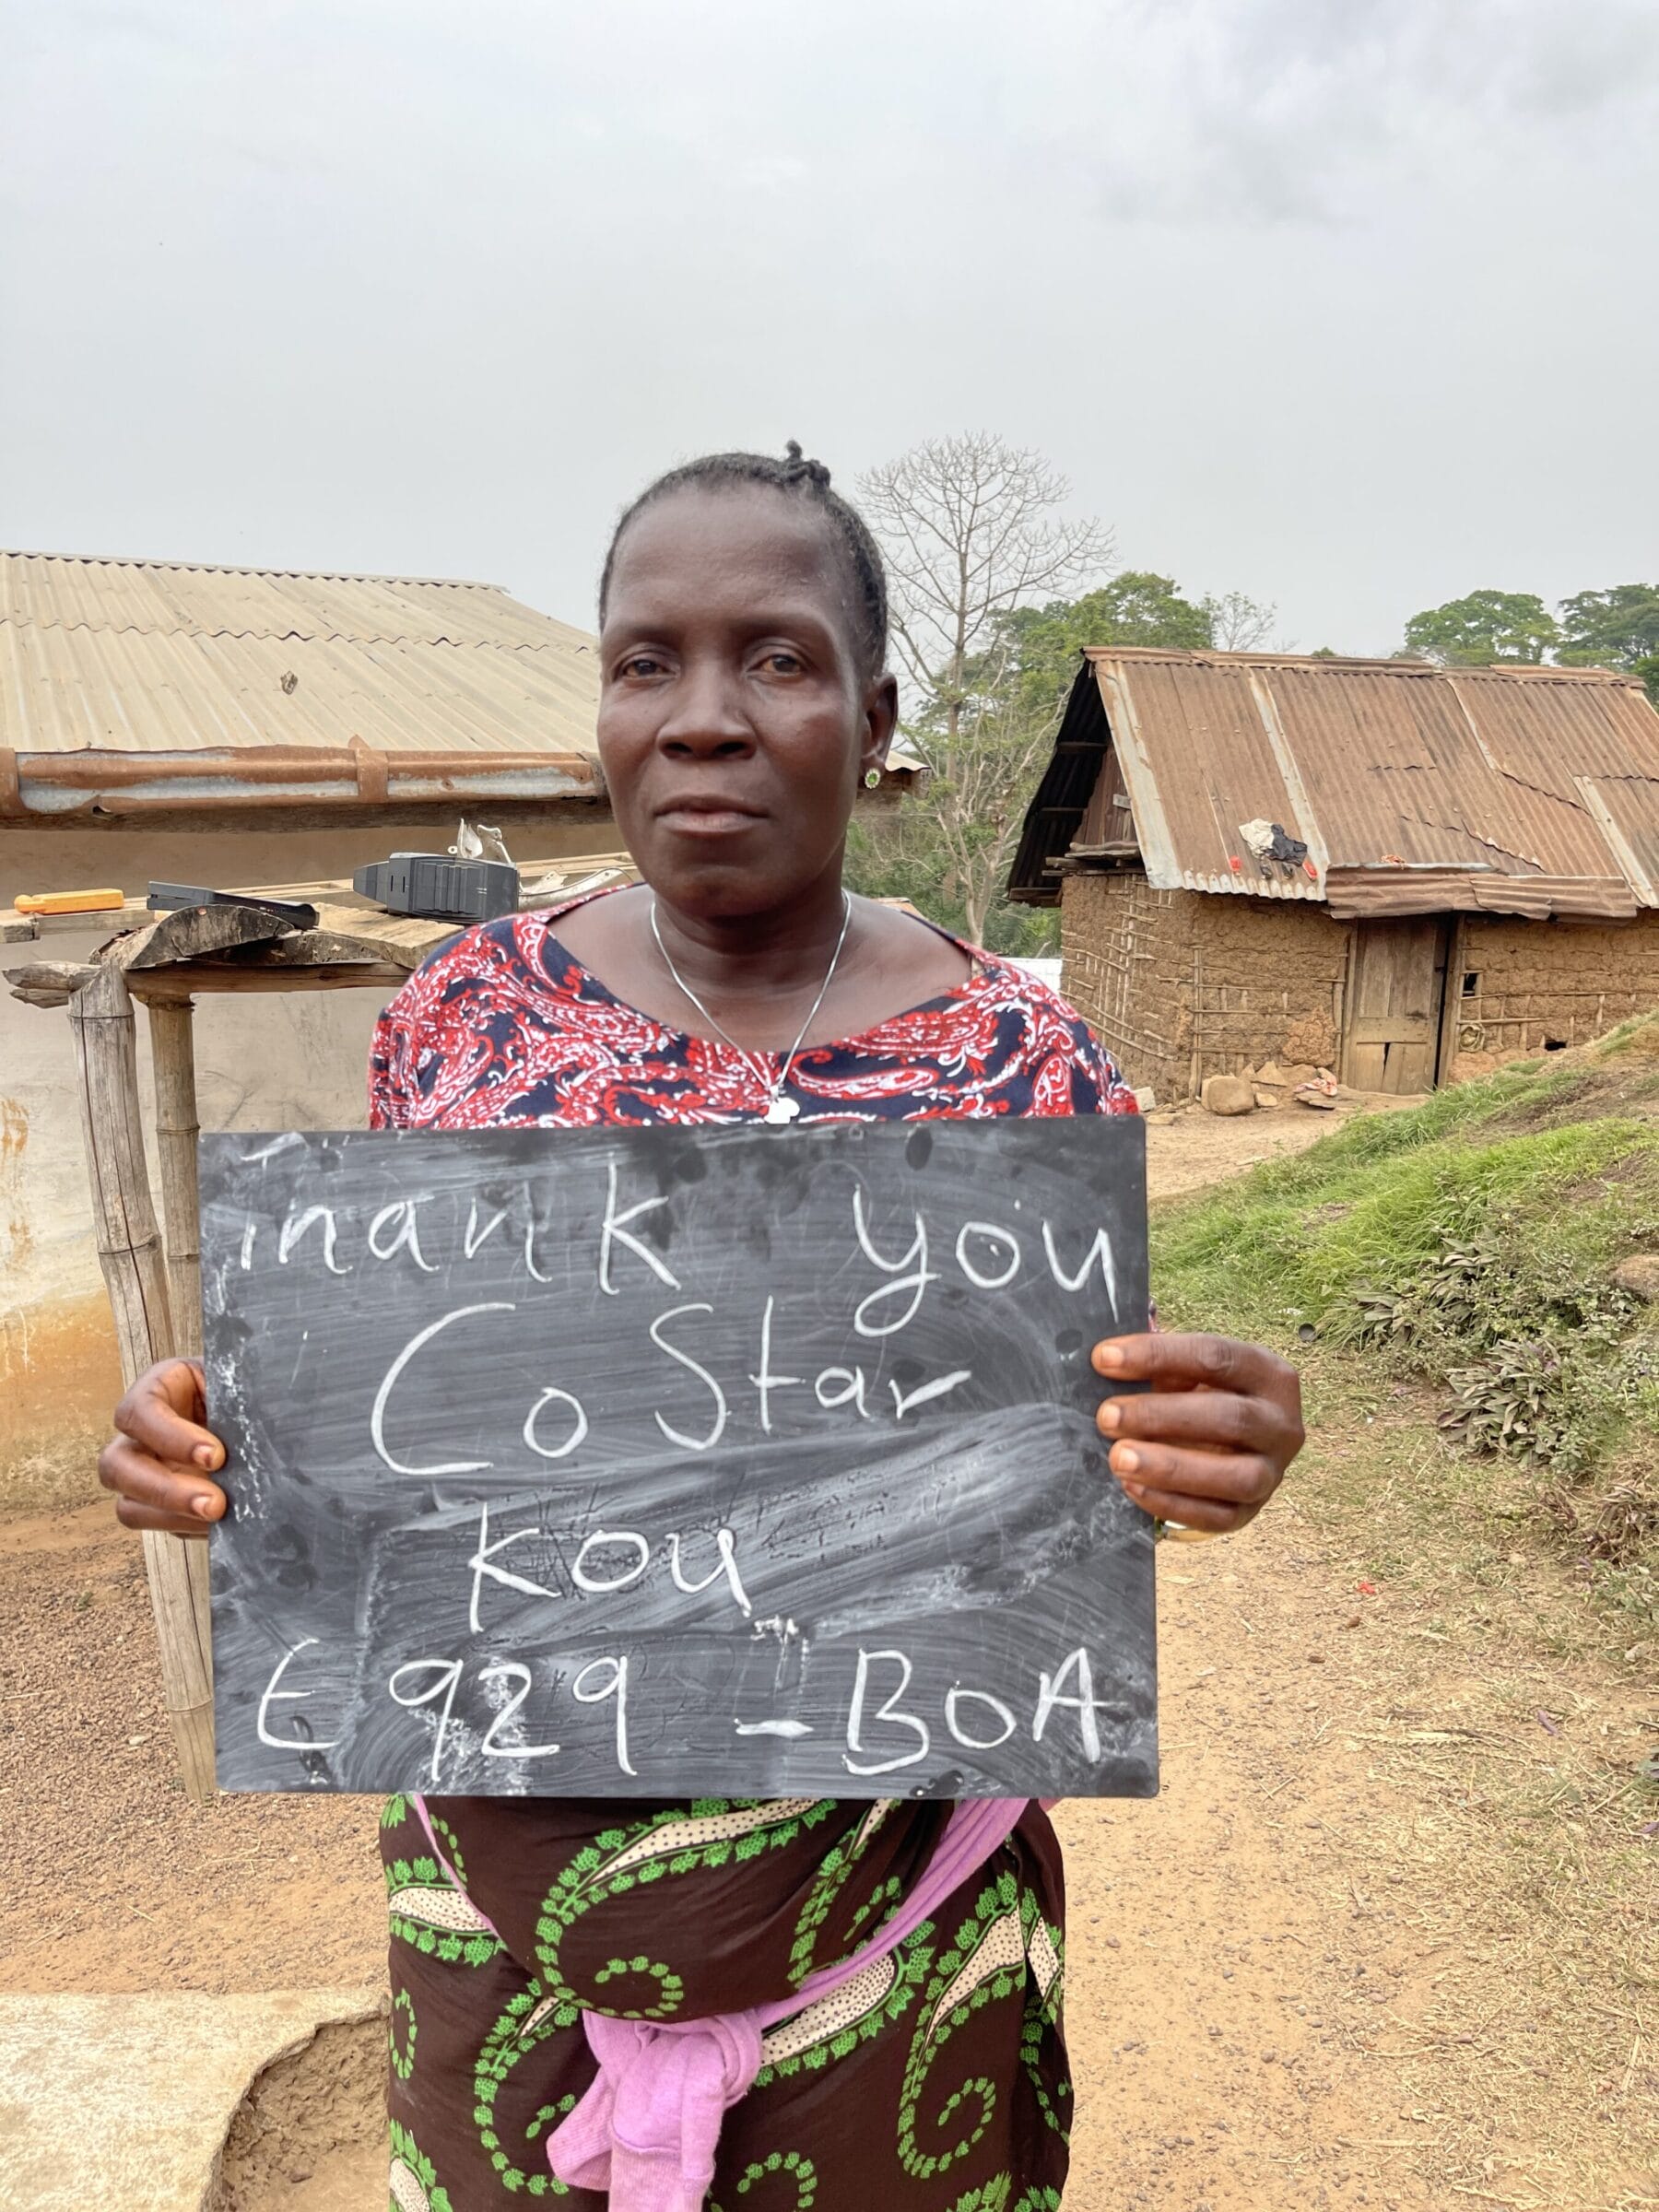 Thank you
CoStar
Kou
E929 - BOA